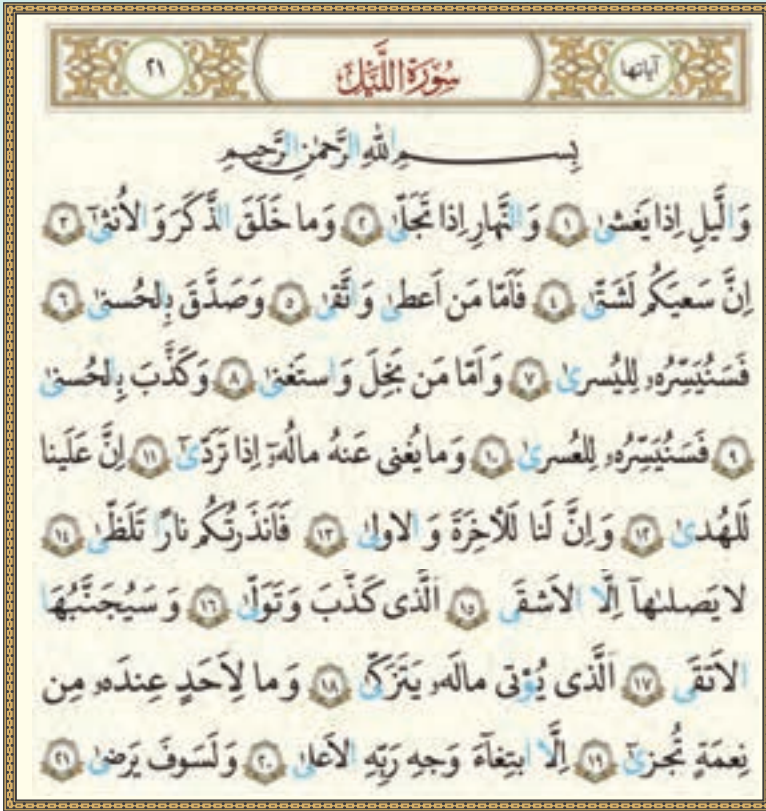 آیاتها سُوْرَةُ اللَّيْلِ ٢١
بِسـمِ اللّٰهِ الرَّحمٰنِ الرَّحيمِ
وَالَّيلِ اِذا يَغشىٰ ١ وَالنَّهارِ اِذا تَجَلّىٰ ٢ وَما خَلَقَ الذَّكَرَ وَالاُنثىٰٓ ٣
اِنَّ سَعيَكُم لَشَتّىٰ ٤ فَاَمّا مَن اَعطىٰ وَاتَّقىٰ ٥ وَصَدَّقَ بِالحُسنىٰ ٦
فَسَنُيَسِّرُهۥ لِليُسرىٰ ٧ وَاَمّا مَن بَخِلَ وَاستَغنىٰ ٨ وَكَذَّبَ بِالحُسنىٰ
٩ فَسَنُيَسِّرُهۥ لِلعُسرىٰ ١٠ وَما يُغنى عَنهُ مالُهۥٓ اِذا تَرَدّىٰٓ ١١ اِنَّ عَلَينا
لَلهُدىٰ ١٢ وَاِنَّ لَنا لَلآخِرَةَ وَالاولىٰ ١٣ فَاَنذَرتُكُم نارًا تَلَظّىٰ ١٤
لا يَصلىٰهآ اِلَّا الاَشقَى ١٥ اَلَّذى كَذَّبَ وَتَوَلّىٰ ١٦ وَسَيُجَنَّبُهَا
الاَتقَى ١٧ اَلَّذى يُؤتى مالَهۥ يَتَزَكّىٰ ١٨ وَما لِاَحَدٍ عِندَهۥ مِن
نِعمَةٍ تُجزىٰٓ ١٩ اِلَّا ابتِغآءَ وَجهِ رَبِّهِ الاَعلىٰ ٢٠ وَلَسَوفَ يَرضىٰ ٢١